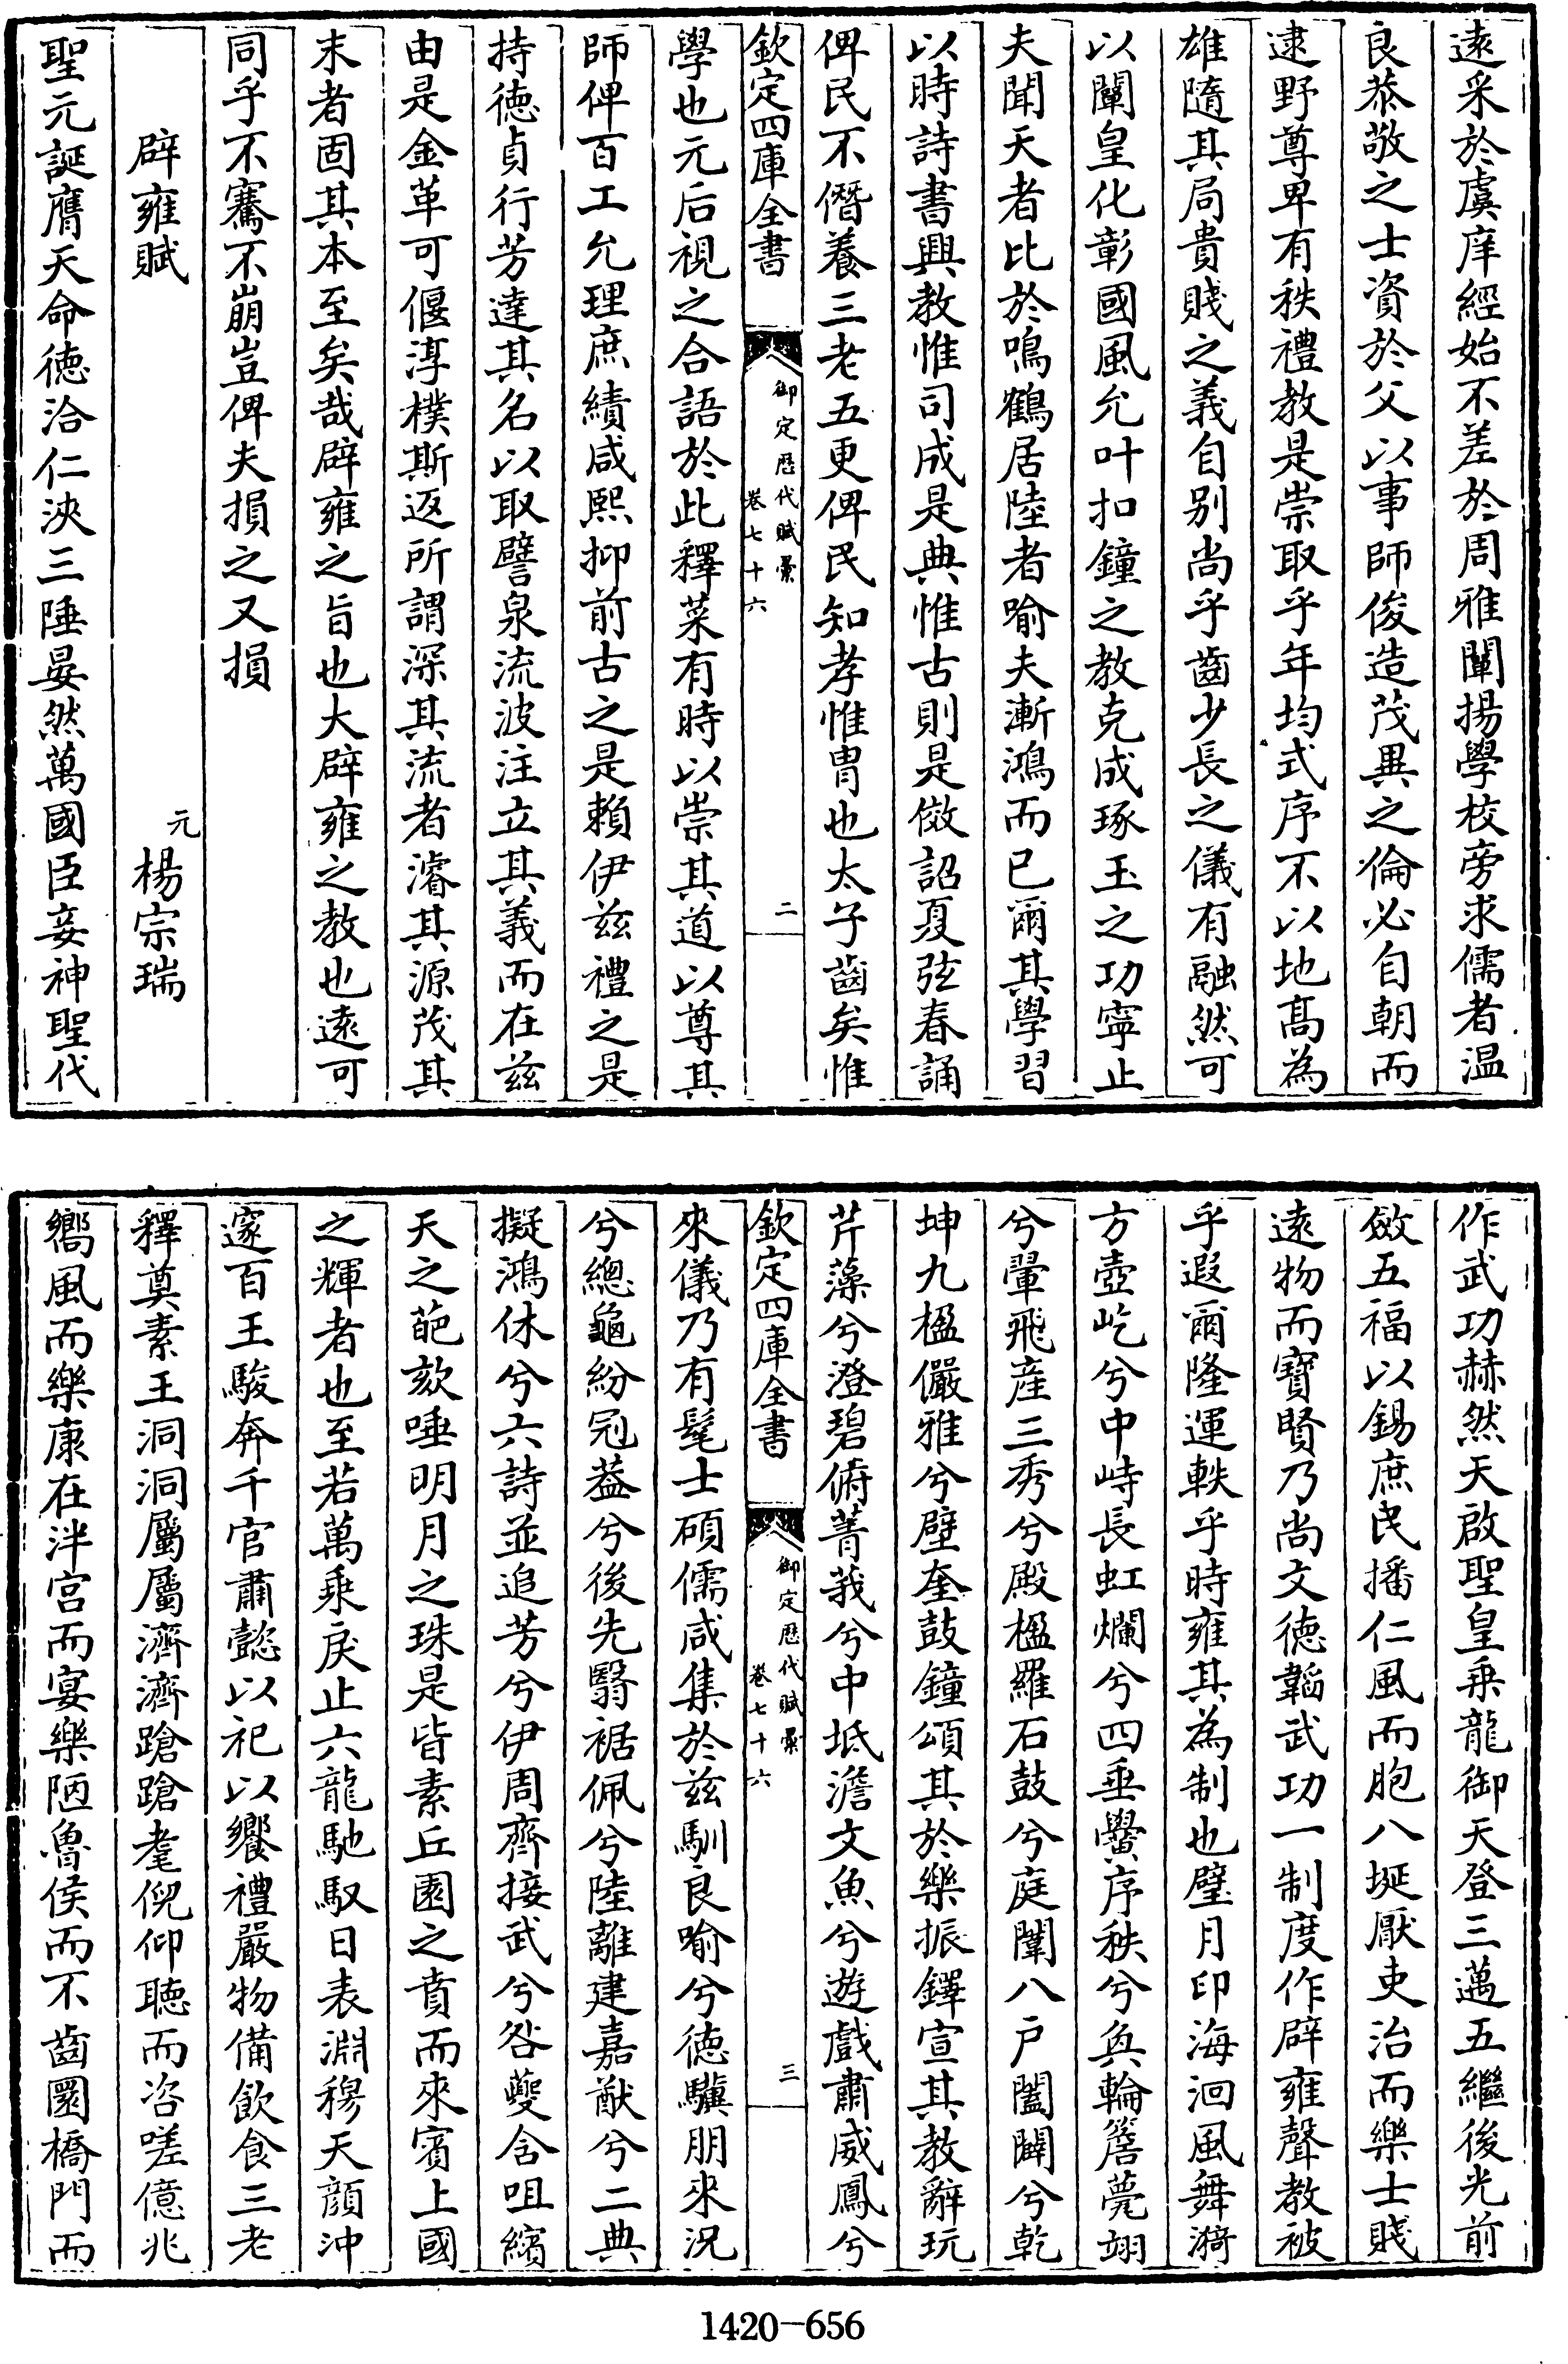 遠采於虞庠經始不差於周雅闡揚學校旁求儒者温
良恭敬之士資於父以事師俊造茂異之倫必自朝而
逮野尊卑有秩禮教是崇取乎年均式序不以地髙為
雄隨其局貴賤之義自别尚乎齒少長之儀有融然可
以闡皇化彰國風允叶扣鐘之教克成琢玉之功寧止
夫聞天者比於鳴鶴居陸者喻夫漸鴻而已爾其學習
以時詩書興教惟司成是典惟古則是傚詔夏弦春誦
俾民不僭養三老五更俾民知孝惟胄也太子齒矣惟
欽定四庫全書
御定歴代賦彚
卷七十六
二
學也元后視之合語於此釋菜有時以崇其道以尊其
師俾百工允理庶績咸熙抑前古之是賴伊兹禮之是
持徳貞行芳達其名以取譬泉流波注立其義而在兹
由是金革可偃淳樸斯返所謂深其流者濬其源茂其
末者固其本至矣哉辟雍之旨也大辟雍之教也遠可
同乎不騫不崩豈俾夫損之又損
辟雍賦
元楊宗瑞
聖元誕膺天命徳洽仁浹三陲晏然萬國臣妾神聖代
作武功赫然天啟聖皇乗龍御天登三邁五繼後光前
斂五福以錫庶民播仁風而胞八埏厭吏治而樂士賤
遠物而寶賢乃尚文徳韜武功一制度作辟雍聲教被
乎遐爾隆運軼乎時雍其為制也璧月印海洄風舞漪
方壺屹兮中峙長虹爛兮四垂黌序秩兮奐輪簷甍翊
兮翬飛産三秀兮殿楹羅石鼓兮庭闈八戸闔闢兮乾
坤九楹儼雅兮壁奎鼓鐘頌其於樂振鐸宣其教辭玩
芹藻兮澄碧俯菁莪兮中坻澹文魚兮遊戲肅威鳳兮
欽定四庫全書
御定歴代賦彚
卷七十六
三
來儀乃有髦士碩儒咸集於兹馴良喻兮徳驥朋來況
兮總龜紛冠葢兮後先翳裾佩兮陸離建嘉猷兮二典
擬鴻休兮六詩並追芳兮伊周齊接武兮咎夔含咀繽
天之葩欬唾明月之珠是皆素丘園之賁而來賓上國
之輝者也至若萬乗戾止六龍馳馭日表淵穆天顔冲
邃百王駿奔千官肅懿以祀以饗禮嚴物備飲食三老
釋奠素王洞洞屬屬濟濟蹌蹌耄倪仰聴而咨嗟億兆
嚮風而樂康在泮宫而宴樂陋魯侯而不齒圜橋門而
1420-656